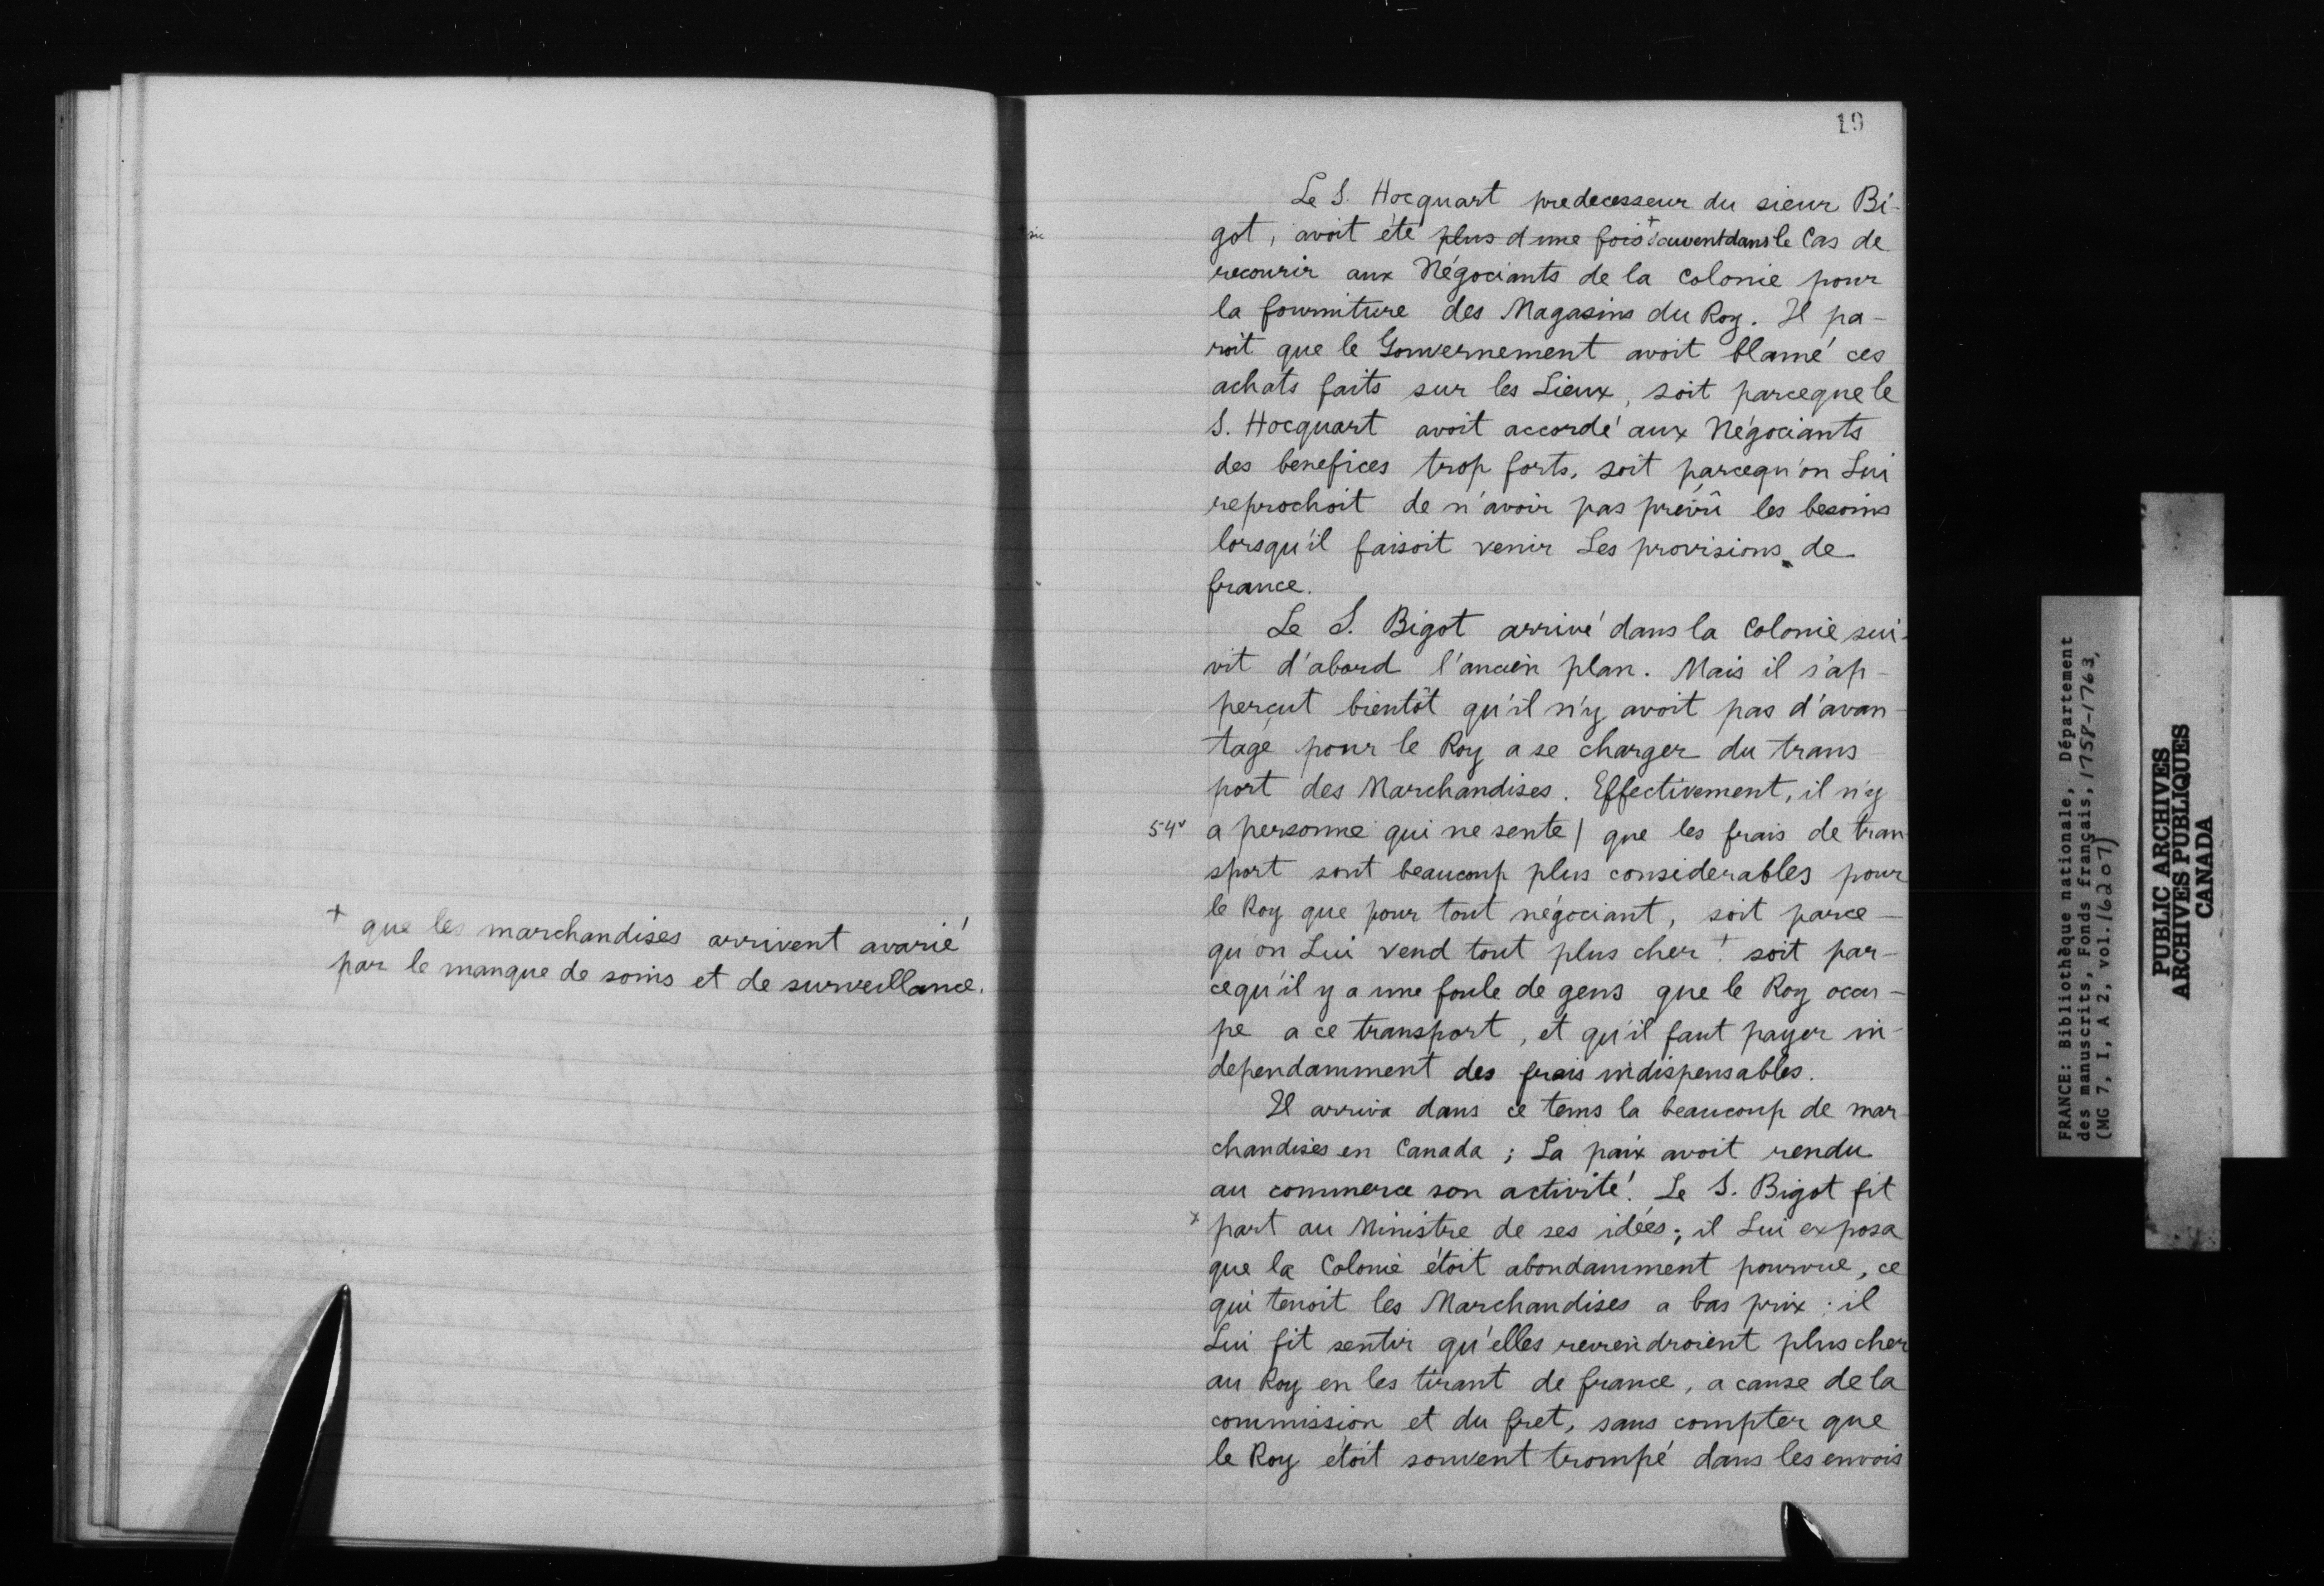 + que les marchandises arrivent avarié
par le manque de soins et de surveillance.
19
Le S. Hocquart predecesseur du sieur Bi-
+ sic
got, avoit été plus d'une fois + souvent dans le Cas de
recourir aux Négociants de la Colonie pour
la fourniture des Magasins du Roy. Il pa-
roit que le Gouvernement avoit blamé ces
achats faits sur les Lieux, soit parceque le
S. Hocquart avoit accordé aux Négociants
des benefices trop forts, soit parcequ'on Lui
reprochoit de n'avoir pas prévû les besoins
lorsqu'il faisoit venir Les provisions de
france.
Le S. Bigot arrivé dans la Colonie sui-
vit d'abord l'ancien plan. Mais il s'ap-
perçut bientôt qu'il n'y avoit pas d'avan-
tage pour le Roy a se charger du trans
port des Marchandises. Effectivement, il n'y
54v a personne qui ne sente | que les frais de tran-
sport sont beaucoup plus considerables pour
le Roy que pour tout négociant, soit parce-
qu'on Lui vend tout plus cher + soit par-
cequ'il y a une foule de gens que le Roy occu-
pe a ce transport, et qu'il faut payer in-
dependamment des frais indispensables.
Il arriva dans ce tems la beaucoup de mar-
chandises en Canada ; La paix avoit rendu
au commerce son activité. Le S. Bigot fit
x part au Ministre de ses idées ; il Lui exposa
que la Colonie étoit abondamment pourvue, ce
qui tenoit les Marchandises a bas prix : il
Lui fit sentir qu'elles reviendroient plus cher
au Roy en les tirant de france, a cause de la
commission et du fret, sans compter que
le Roy étoit souvent trompé dans les envois
FRANCE: Bibliothèque nationale, Département
des manuscrits, Fonds français, 1758-1763,
(MG 7, I, A 2, vol. 16207)
PUBLIC ARCHIVES
ARCHIVES PUBLIQUES
CANADA